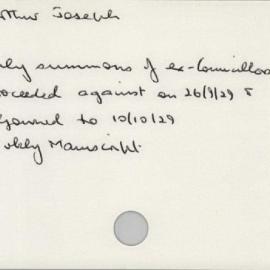 thur Joseph
ly summons of ex-Councillors
oceeded against on 26/9/29 &
journed to 10/10/29
okly Manuscript.